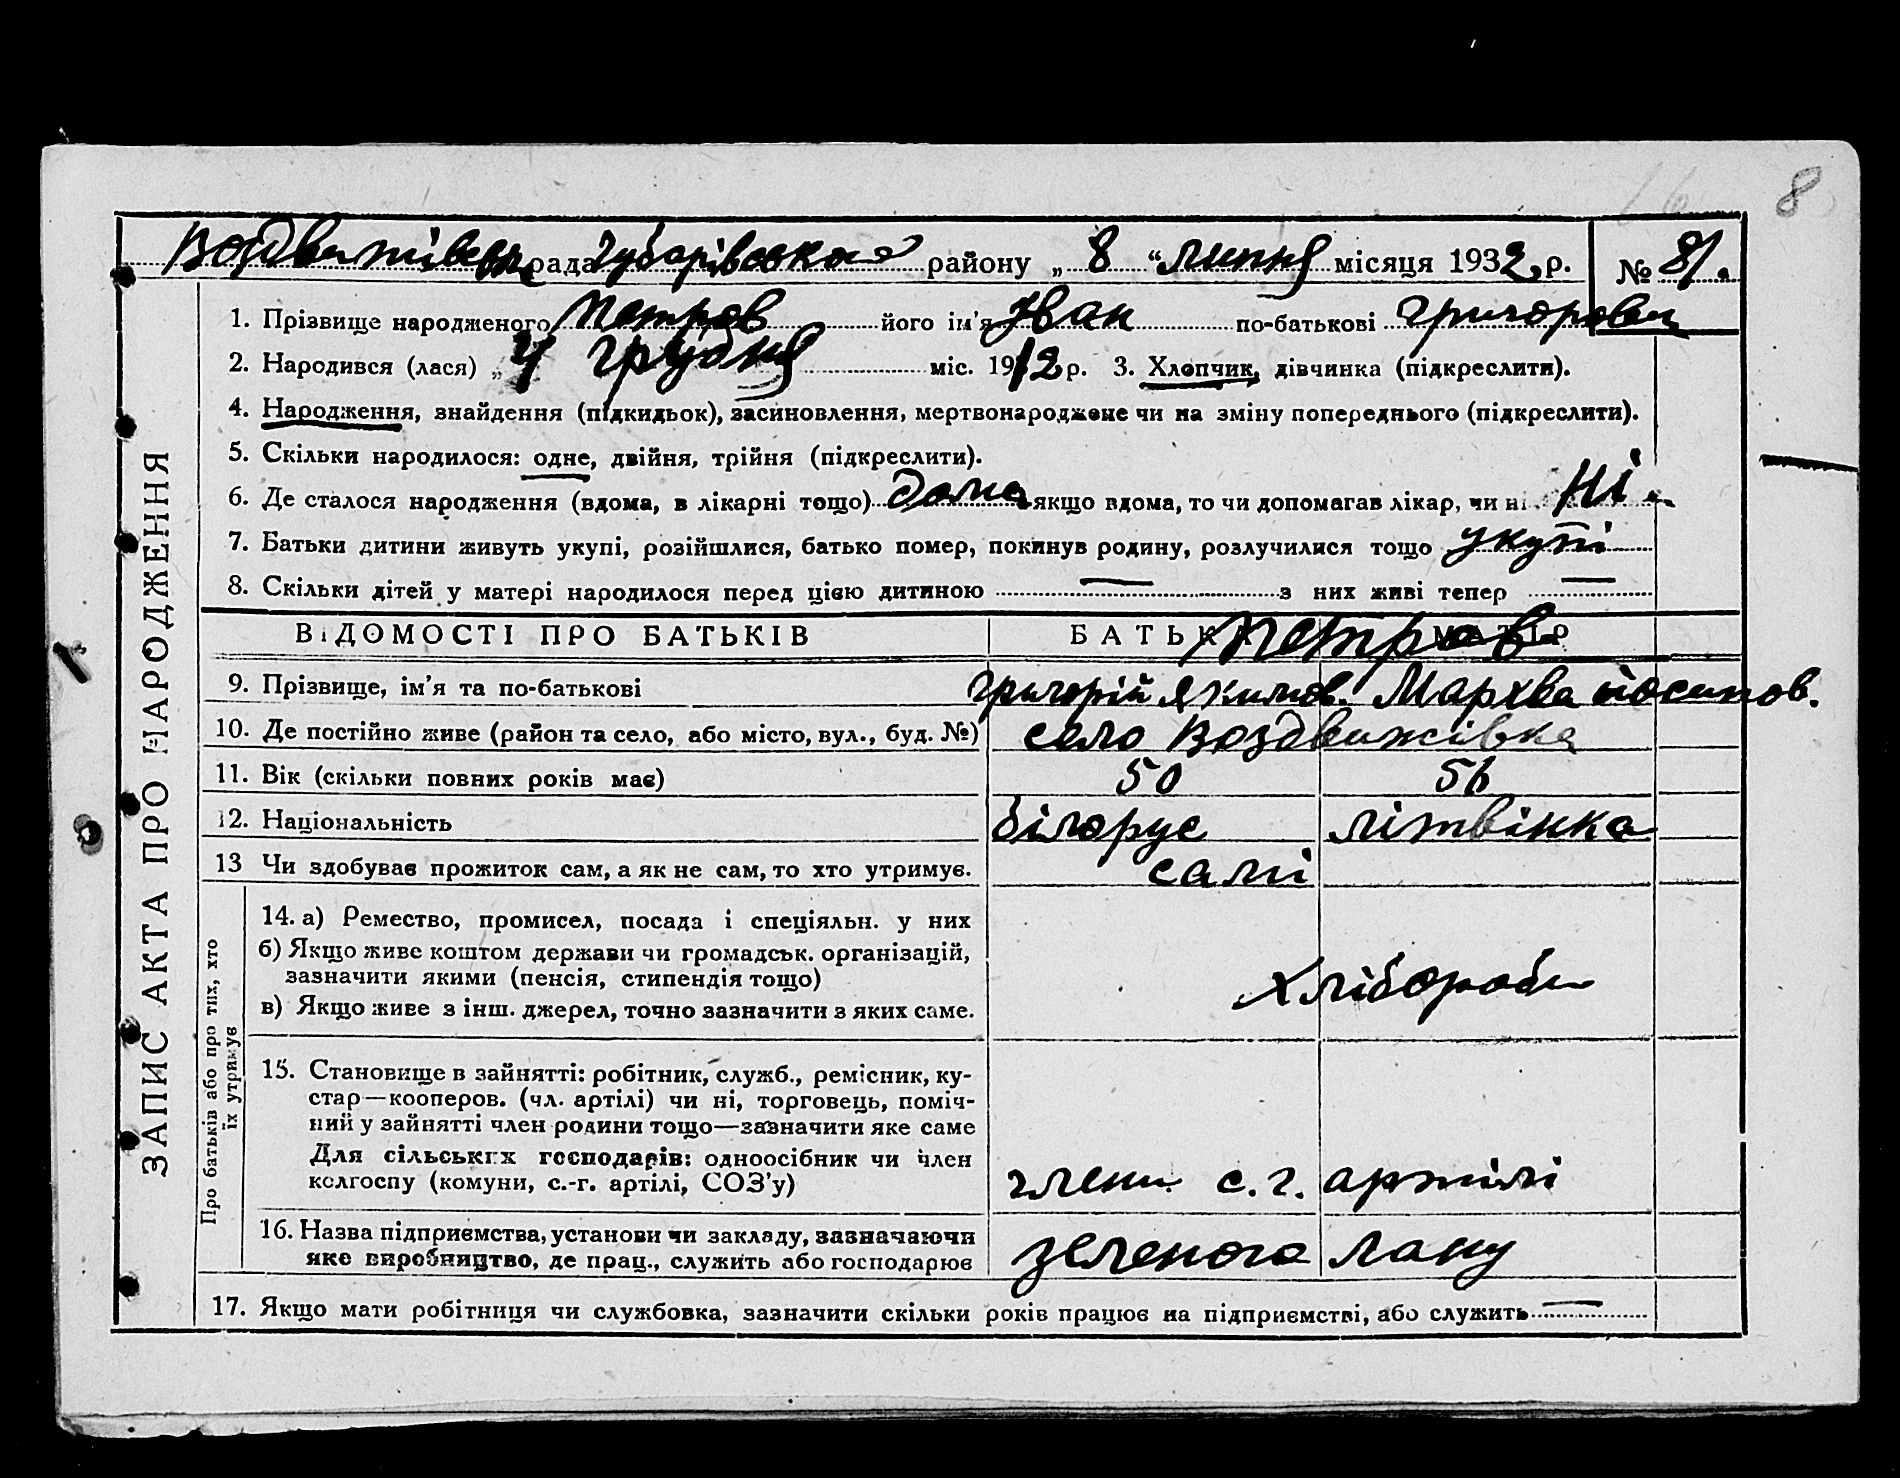 8
Воздвижівська рада Чубарівсько̄го району „ 8 “ липня місяця 1932 р. № 81.
1. Прізвище народженого Петров його ім’я Іван по-батькові Григорович
2. Народився (лася) „ 4 грудня міс. 1912 р. 3. Хлопчик, дівчинка (підкреслити).
4. Народження, знайдення (підкидьок), засиновлення, мертвонароджене чи на зміну попереднього (підкреслити).
5. Скільки народилося: одне, двійня, трійня (підкреслити).
6. Де сталося народження (вдома, в лікарні тощо) дома якщо вдома, то чи допомагав лікар, чи ні Ні.
7. Батьки дитини живуть укупі, розійшлися, батько помер, покинув родину, розлучилися тощо укупі
8. Скільки дітей у матері народилося перед цією дитиною — з них живі тепер —
ВІДОМОСТІ ПРО БАТЬКІВ БАТЬКО МАТІР
Петров
9. Прізвище, ім’я та по-батькові Григорій Якимов. Мархва Йосипов.
10. Де постійно живе (район та село, або місто, вул., буд. №) село Воздвижівка
11. Вік (скільки повних років має) 50 56
12. Національність білорус літвінка
13 Чи здобуває прожиток сам, а як не сам, то хто утримує. самі
14. а) Ремество, промисел, посада і спеціяльн. у них
б) Якщо живе коштом держави чи громадськ. організацій,
зазначити якими (пенсія, стипендія тощо) Хлібороби
в) Якщо живе з інш. джерел, точно зазначити з яких саме.
15. Становище в зайнятті: робітник, служб., ремісник, ку-
стар—кооперов. (чл. артілі) чи ні, торговець, поміч-
ний у зайнятті член родини тощо—зазначити яке саме
Для сільських господарів: одноосібник чи член
колгоспу (комуни, с.-г. артілі, СОЗ’у) члени с. г. артілі
16. Назва підприємства, установи чи закладу, зазначаючи
яке виробництво, де прац., служить або господарює зеленого лану
17. Якщо мати робітниця чи службовка, зазначити скільки років працює на підприємстві, або служить —
ЗАПИС АКТА ПРО НАРОДЖЕННЯ
Про батьків або про тих, хто
їх утримує